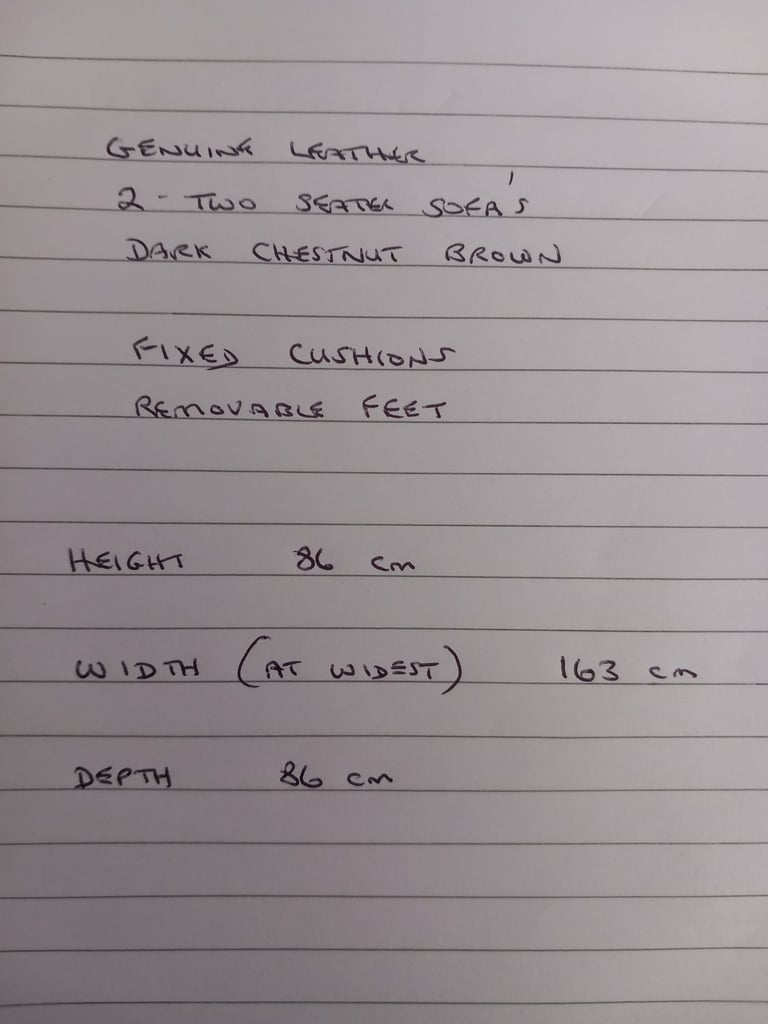 GENUINE LEATHER
2 - TWO SEATER SOFA'S
DARK CHESTNUT BROWN
FIXED CUSHIONS
REMOVABLE FEET
HEIGHT 86 cm
WIDTH (AT WIDEST) 163 cm
DEPTH 86 cm